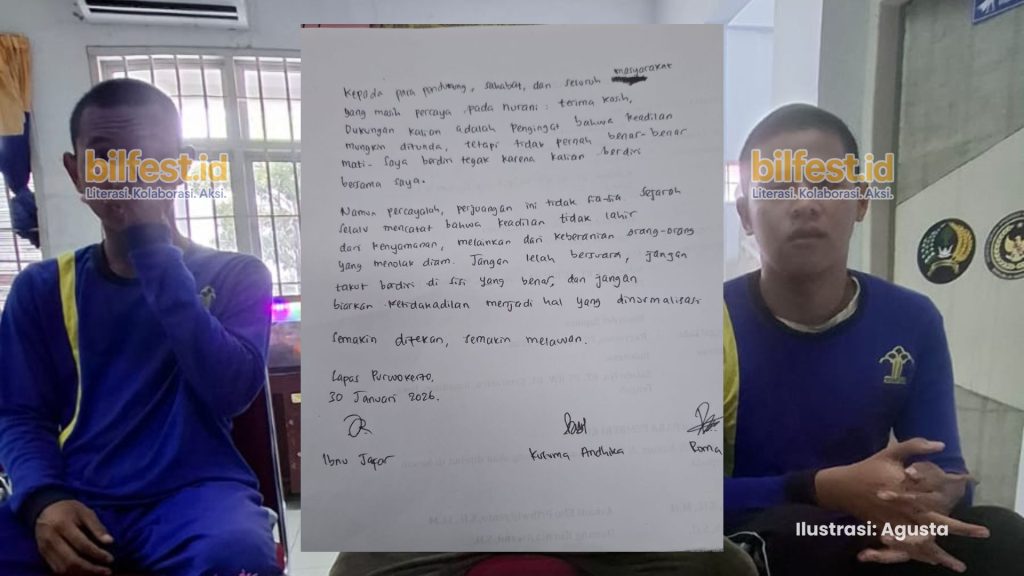 bilfest.id
Literasi. Kolaborasi. Aksi.
Kepada para pendukung, sahabat, dan seluruh masyarakat
yang masih percaya pada nurani : terima kasih,
Dukungan kalian adalah pengingat bahwa keadilan
mungkin ditunda, tetapi tidak pernah benar-benar
mati. Saya berdiri tegak karena kalian berdiri
bersama saya.
Namun percayalah, perjuangan ini tidak sia-sia. Sejarah
selalu mencatat bahwa keadilan tidak lahir
dari kenyamanan, melainkan dari keberanian orang-orang
yang menolak diam. Jangan lelah bersuara, jangan
takut berdiri di sisi yang benar, dan jangan
biarkan ketidakadilan menjadi hal yang dinormalisasi
Semakin ditekan, semakin melawan.
Lapas Purwokerto,
30 Januari 2026.
Ibnu Jafar
Kusuma Andhika
Roma
bilfest.id
Literasi. Kolaborasi. Aksi.
Ilustrasi: Agusta